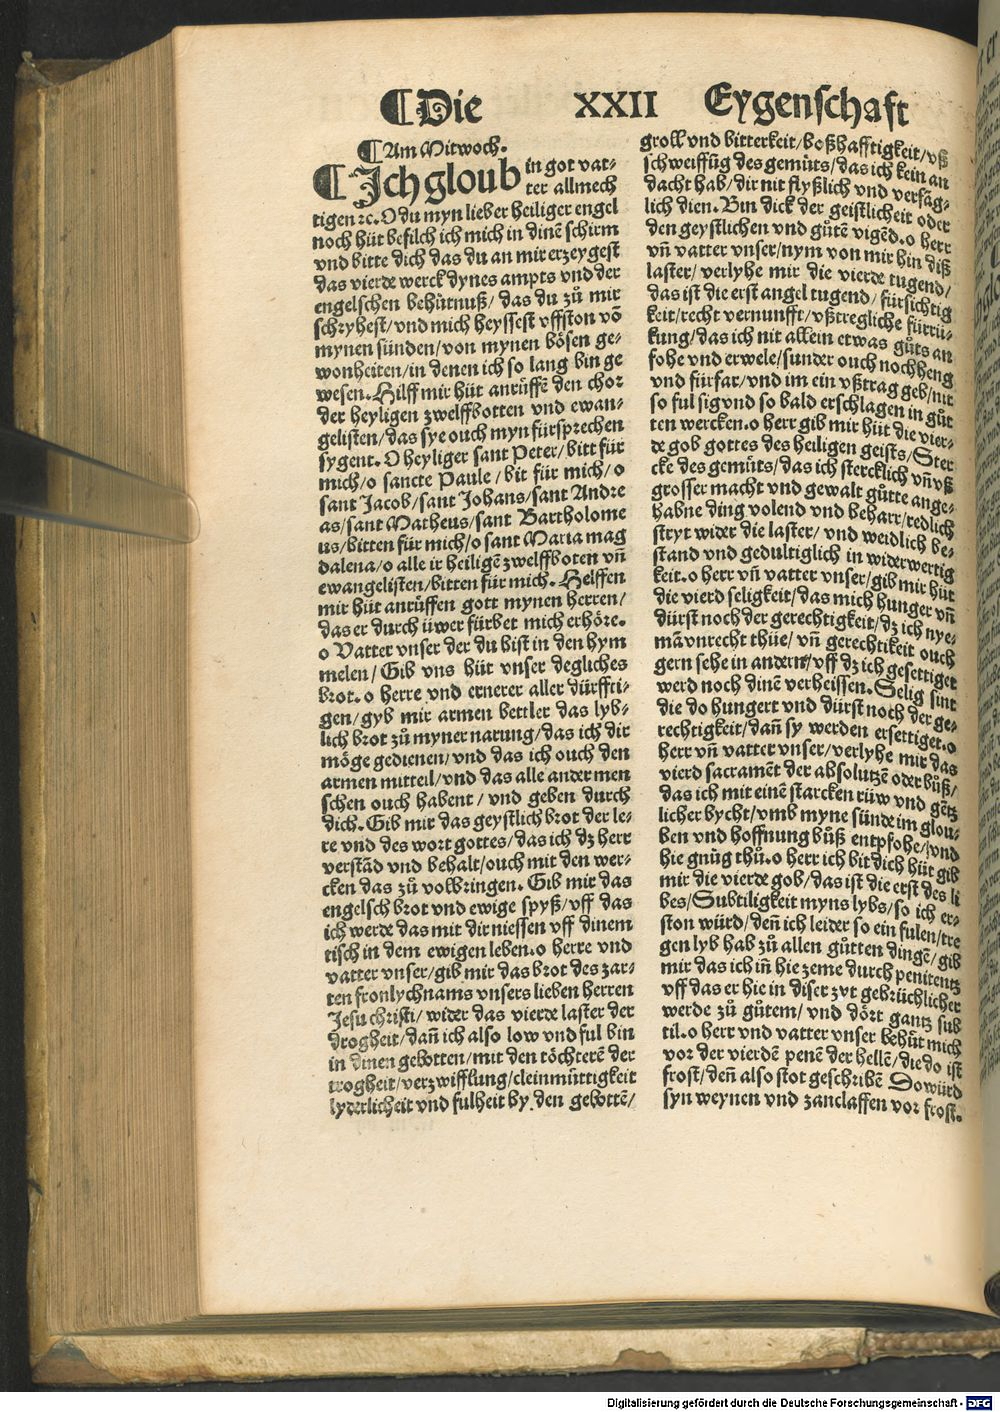 ¶Die XXII Eygenschaft
¶Am Mitwoch.
¶Ich gloub in got vat-
ter allmech
tigen ꝛc. O du myn lieber heiliger engel
noch hüt befilch ich mich in dinē schirm
vnd bitte dich das du an mir erzeygest
das vierde werck dynes ampts vnd der
engelschen behütnuß/ das du zů mir
schryhest/vnd mich heyssest vffston vō
mynen sünden/von mynen bösen ge-
wonheiten/in denen ich so lang bin ge
wesen. Hilff mir hüt anrüffē den chor
der heyligen zwelffbotten vnd ewan-
gelisten/das sye ouch myn fürsprechen
sygent. O heyliger sant Peter/bitt für
mich/o sancte Paule/bit für mich/o
sant Jacob/sant Johans/sant Andre
as/sant Matheus/sant Bartholome
us/bitten für mich/o sant Maria mag
dalena/o alle ir heiligē zwelffboten vñ
ewangelisten/bitten für mich. Helffen
mir hüt anrüffen gott mynen herren/
das er durch üwer fürbet mich erhöre.
o Vatter vnser der du bist in den hym
melen/Gib vns hüt vnser degliches
brot. o herre vnd ernerer aller dürffti-
gen/gyb mir armen bettler das lyb-
lich brot zů myner narung/das ich dir
möge gedienen/vnd das ich ouch den
armen mitteil/vnd das alle ander men
schen ouch habent/vnd geben durch
dich. Gib mir das geystlich brot der le-
re vnd des wort gottes/das ich dz herr
verstād vnd behalt/ouch mit den wer-
cken das zů volbringen. Gib mir das
engelsch brot vnd ewige spyß/vff das
ich werde das mit dir niessen vff dinem
tisch in dem ewigen leben. o herre vnd
vatter vnser/gib mir das brot des zar-
ten fronlychnams vnsers lieben herren
Jesu christi/wider das vierde laster der
drogheit/dañ ich also low vnd ful bin
in dinen gebotten/mit den töchterē der
trogheit/verzwifflung/cleinmüttigkeit
lyderlicheit vnd fulheit by den gebottē/
groll vnd bitterkeit/boßhafftigkeit/vß
schweiffūg des gemüts/das ich kein an
dacht hab/dir nit flyßlich vnd verfāg-
lich dien. Bin dick der geistlicheit oder
den geystlichen vnd gůtē vigēd. o herr
vñ vatter vnser/nym von mir hin diß
laster/verlyhe mir die vierde tugend/
das ist die erst angel tugend/fürsichtig
keit/recht vernunfft/vßtregliche fürrü-
kung/das ich nit allein etwas gůts an
fohe vnd erwele/sunder ouch noch heng
vnd fürfar/vnd im ein vßtrag geb/nit
so ful sig vnd so bald erschlagen in gůt
ten wercken. o herr gib mir hüt die vier-
de gob gottes des heiligen geists/Ster
cke des gemüts/das ich stercklich vñ vß
grosser macht vnd gewalt gůtte ange-
habne ding volend vnd beharr/redlich
stryt wider die laster/vnd weidlich be-
stand vnd gedultiglich in widerwertig
keit. o herr vñ vatter vnser/gib mir hüt
die vierd seligkeit/das mich hunger vñ
dürst noch der gerechtigkeit/dz ich nye-
mā vnrecht thüe/vñ gerechtikeit ouch
gern sehe in andern/vff dz ich gesettiget
werd noch dinē verheissen. Selig sint
die do hungert vnd dürst noch der ge-
rechtigkeit/dañ sy werden ersettiget. o
herr vñ vatter vnser/verlyhe mir das
vierd sacramēt der absolutzē oder bůß/
das ich mit einē starcken rüw vnd gētz
licher bycht/vmb myne sünde im glou-
ben vnd hoffnung bůß entpfohe/vnd
hie gnůg thů. o herr ich bit dich hüt gib
mir die vierde gob/das ist die erst des li
bes/Subtiligkeit myns lybs/so ich er-
ston würd/deñ ich leider so ein fulen/tre
gen lyb hab zů allen gůtten dingē/gib
mir das ich iñ hie zeme durch penitentz
vff das er hie in diser zyt gebrüchlicher
werde zů gůtem/vnd dört gantz sub
til. o herr vnd vatter vnser behüt mich
vor der vierdē penē der hellē/die do ist
frost/deñ also stot geschribē Do würd
syn weynen vnd zanclaffen vor frost.
Digitalisierung gefördert durch die Deutsche Forschungsgemeinschaft - DFG